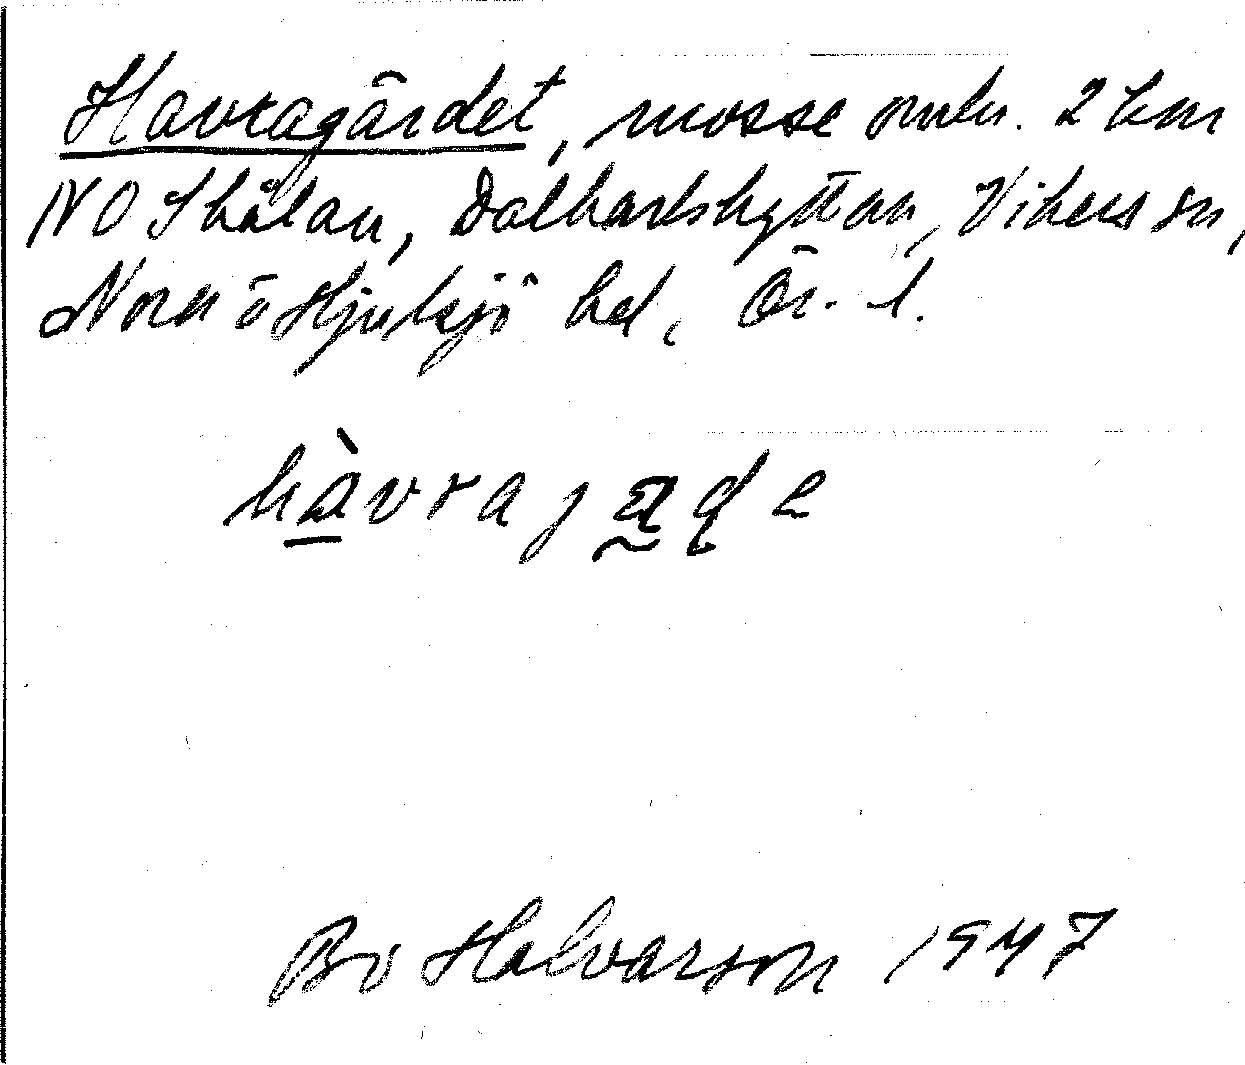 Havragärdet, mosse omkr. 2 km
NO Skålan, Dalkarlshyttan, Vikers sn,
Nora ö Hjulsjö hd, Ör. l.
hàvrajäde
Bo Halvarson 1947